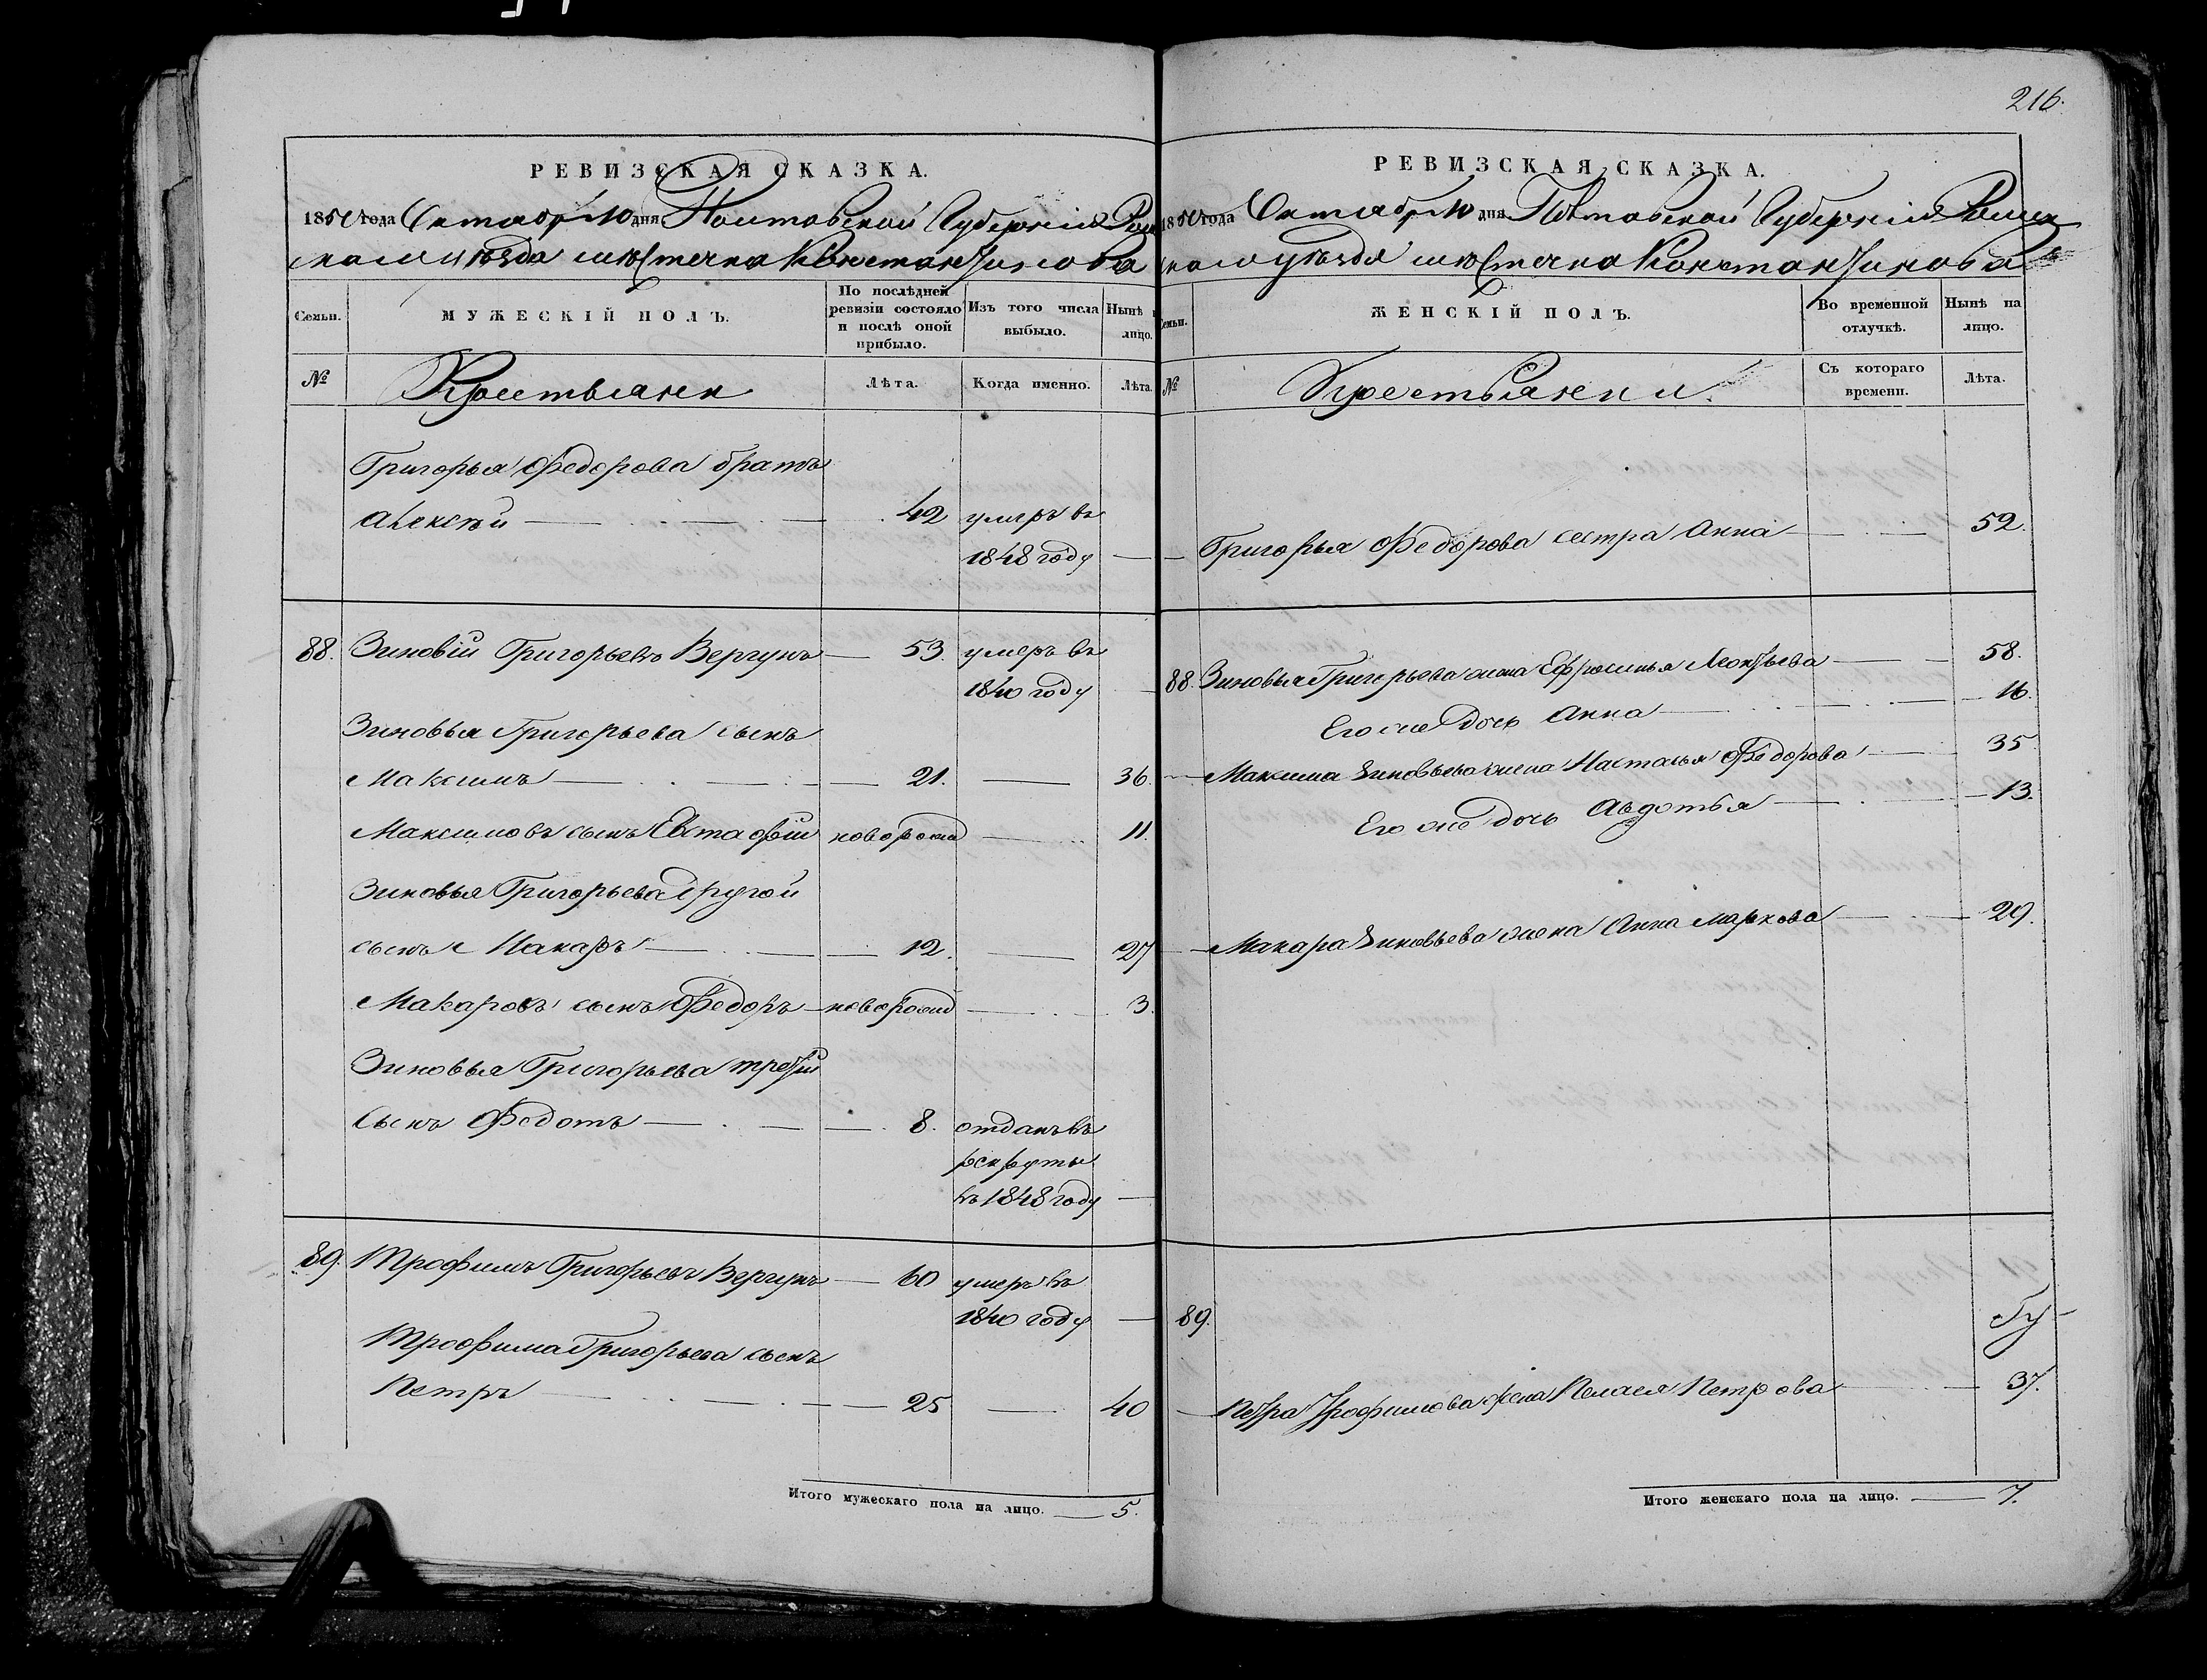 216.
РЕВИЗСКАЯ СКАЗКА.
1850 года Октября 10 дня Полтавской Губернии Ромен
скаго уѣзда мѣстечка Константинова
Семьи.
МУЖЕСКІЙ ПОЛЪ.
По послѣдней ревизіи состояло и послѣ оной прибыло.
Изъ того числа выбыло.
Нынѣ на лицо.
№
Крестьяне
Лѣта.
Когда именно.
Лѣта.
Григорья Федорова братъ
Алексѣй — 42 умеръ въ
1848 году —
88. Зиновій Григорьевъ Вергунъ — 53. умеръ въ
1840 году —
Зиновья Григорьева сынъ
Максимъ — 21. — 36.
Максимовъ сынъ Евстафій новорожд — 11.
Зиновья Григорьева другой
сынъ Макаръ — 12. — 27
Макаровъ сынъ Федоръ — новорожд — 3.
Зиновья Григорьева третій
сынъ Федотъ — 8. отданъ въ
рекруты
въ 1848 году —
89. Трофимъ Григорьевъ Вергунъ — 60 умеръ въ
1840 году —
Трофима Григорьева сынъ
Петръ — 25 — 40
Итого мужескаго пола на лицо. — 5.
РЕВИЗСКАЯ СКАЗКА.
1850 года Октября 10 дня Полтавской Губернии Ромен
скаго уѣзда мѣстечка Константинова
Семьи.
ЖЕНСКІЙ ПОЛЪ.
Во временной отлучкѣ.
Нынѣ на лицо.
№
Крестьянки.
Съ котораго времени.
Лѣта.
Григорья Федорова сестра Анна — 52.
88. Зиновья Григорьева жена Ефросинья Леонтьева — 58.
Его же дочь Анна — 16.
Максима Зиновьева жена Настасья Федорова — 35.
Его же дочь Авдотья — 13.
Макара Зиновьева жена Анна Маркова — 29.
89.
Петра Трофимова жена Пелагея Петрова — 37.
Итого женскаго пола на лицо. — 7.